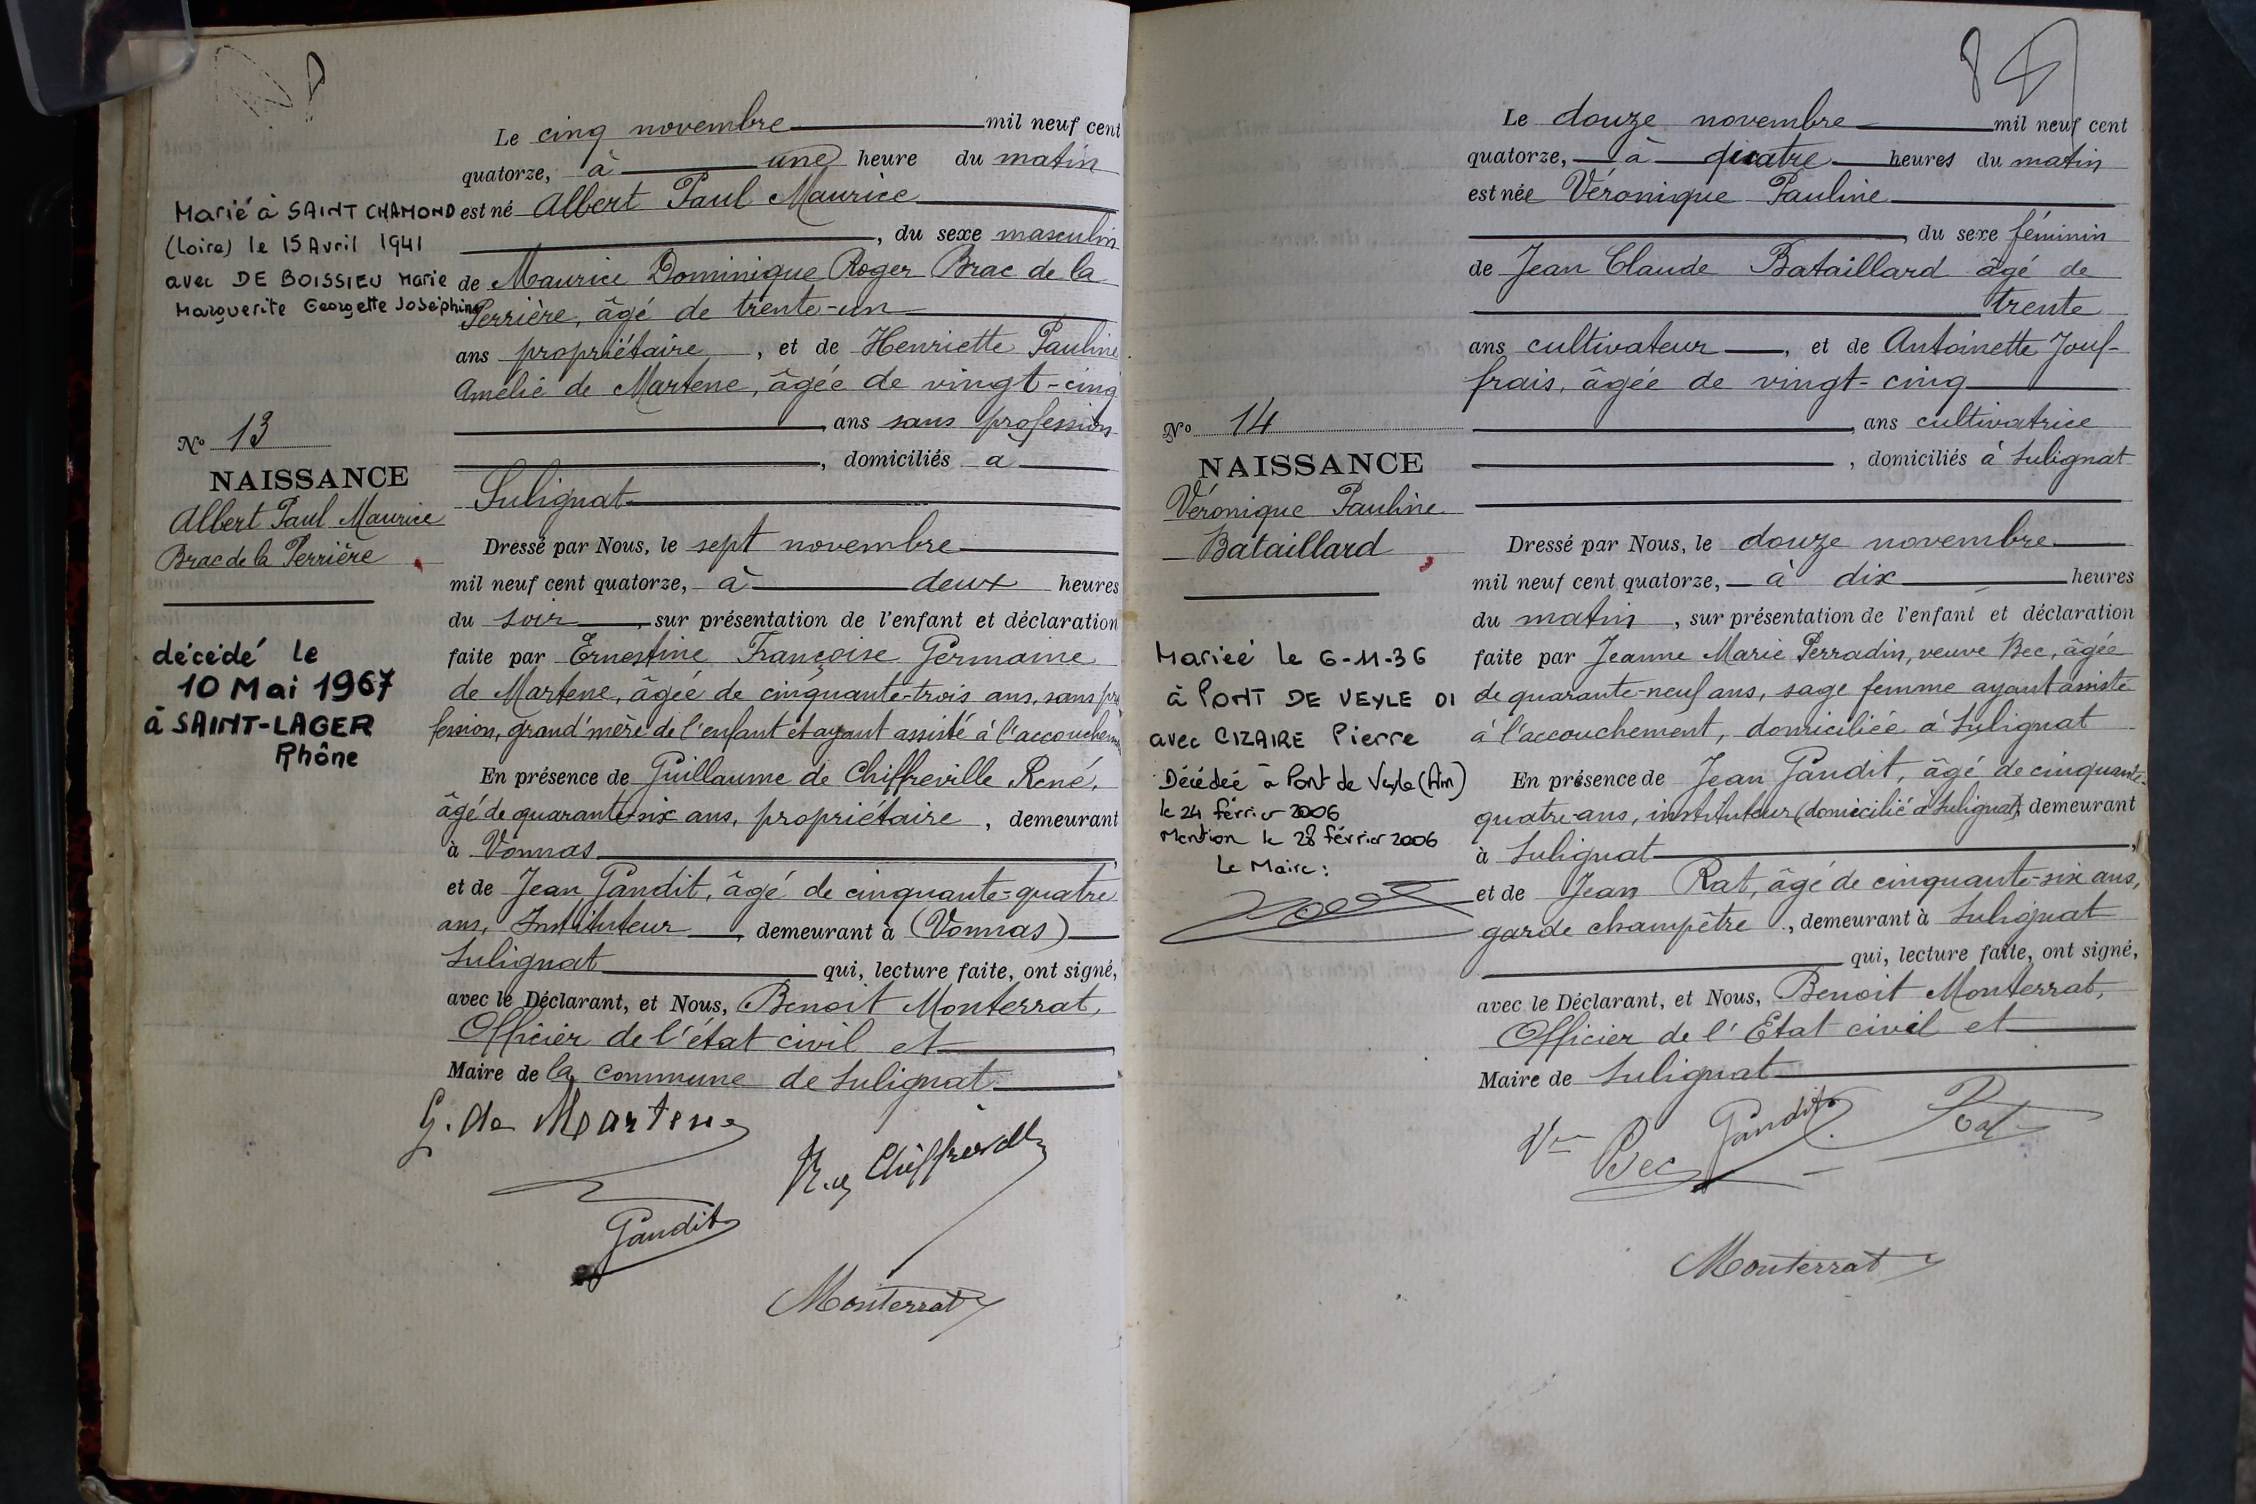 Le cinq novembre mil neuf cent
quatorze, à une heure du matin
est né Albert Paul Maurice
, du sexe masculin
de Maurice Dominique Roger Brac de la
Perrière, âgé de trente-un
ans propriétaire, et de Henriette Pauline
Amélie de Martene, âgée de vingt-cinq
, ans sans profession
, domiciliés a
Sulignat
Dressé par Nous, le sept novembre
mil neuf cent quatorze, à deux heures
du soir, sur présentation de l'enfant et déclaration
faite par Ernestine Françoise Germaine
de Martene, âgée de cinquante-trois ans, sans pro
fession, grand'mère de l'enfant et ayant assisté à l'accouchement
En présence de Guillaume de Chiffreville René,
âgé de quarante-six ans, propriétaire, demeurant
à Vonnas
et de Jean Gandit, âgé de cinquante-quatre
ans, Instituteur, demeurant à (Vonnas)
Sulignat qui, lecture faite, ont signé,
avec le Déclarant, et Nous, Benoit Monterrat,
Officier de l'état civil et
Maire de la commune de Sulignat
G. de Martene
R. de Chiffreville
Gandit
Monterrat
Marié à SAINT CHAMOND
(Loire) le 15 Avril 1941
avec DE BOISSIEU Marie
Marguerite Georgette Joséphine
No 13
NAISSANCE
Albert Paul Maurice
Brac de la Perrière
décédé le
10 Mai 1967
à SAINT-LAGER
Rhône
Le douze novembre mil neuf cent
quatorze, à quatre heures du matin
est née Véronique Pauline
, du sexe féminin
de Jean Claude Bataillard âgé de
trente
ans cultivateur, et de Antoinette Jouf-
frais, âgée de vingt-cinq
, ans cultivatrice
, domiciliés à Sulignat
Dressé par Nous, le douze novembre
mil neuf cent quatorze, à dix heures
du matin, sur présentation de l'enfant et déclaration
faite par Jeanne Marie Perradin, veuve Bec, âgée
de quarante-neuf ans, sage femme ayant assisté
à l'accouchement, domiciliée à Sulignat
En présence de Jean Gandit, âgé de cinquante-
quatre-ans, instituteur (domicilié à Sulignat), demeurant
à Sulignat,
et de Jean Rat, âgé de cinquante-six ans,
garde champêtre, demeurant à Sulignat
qui, lecture faite, ont signé,
avec le Déclarant, et Nous, Benoit Monterrat,
Officier de l'Etat civil et
Maire de Sulignat
Vve Bec
Gandit
Rat
Monterrat
No 14
NAISSANCE
Véronique Pauline
Bataillard
Mariée le 6-11-36
à PONT DE VEYLE 01
avec CIZAIRE Pierre
Décédée à Pont de Veyle (Ain)
le 24 février 2006
Mention le 28 février 2006
Le Maire :